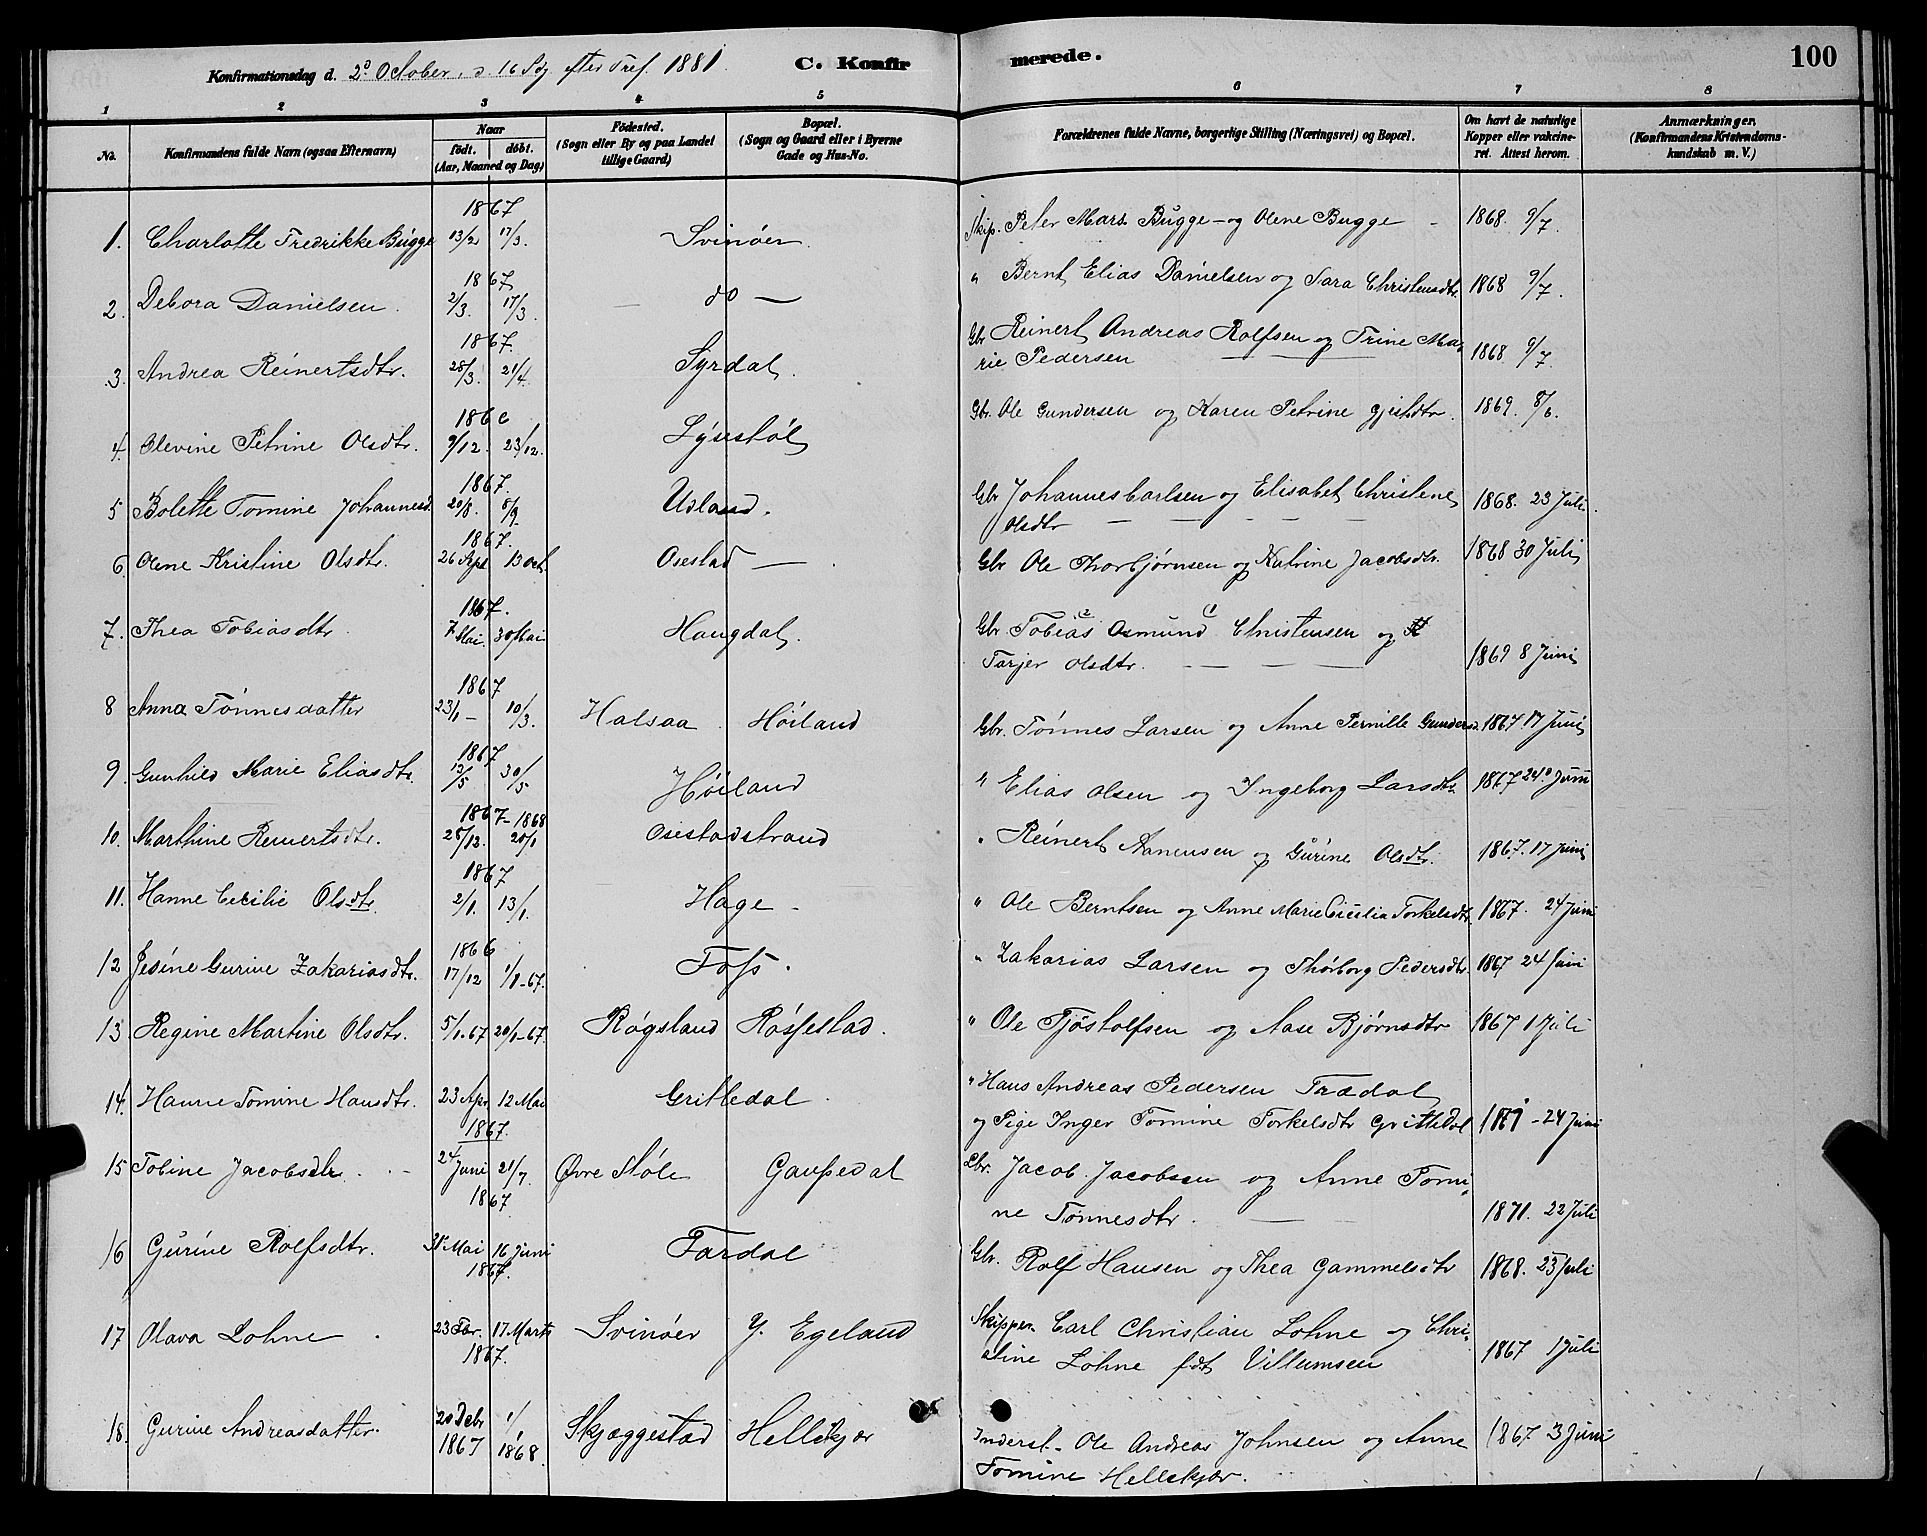 Konfirmationsdag d. 2º October, s. 16 Sdg efter Tref. 1881. C. Konfirmerede. 100
1 2 3 4 5 6 7 8
No. Konfirmandens fulde Navn (ogsaa Efternavn) Naar födt. döbt. (Aar, Maaned og Dag) Födested. (Sogn eller By og paa Landet tillige Gaard) Bopæl. (Sogn og Gaard eller i Byerne Gade og Hus-No. Forældrenes fulde Navne, borgerlige Stilling (Næringsvei) og Bopæl. Om havt de naturlige Kopper eller vakcineret. Attest herom. Anmærkninger. (Konfirmandens Kristendomskundskab m. V.)
1. Charlotte Fredrikke Bugge 1867 13/2 17/3. Svinøer. Skip. Peter Mars Bugge - og Olene Bugge - 1868 9/7.
2. Debora Danielsen. 1867 2/3. 17/3. — do — " Bernt Elias Danielsen og Sara Christensdtr. 1868 9/7.
3. Andrea Reinertsdtr. 1867. 28/3. 21/4. Syrdal. Gbr Reinert Andreas Rolfsen og Trine Ma-
rie Pedersen 1868 9/7.
4. Olevine Petrine Olsdtr. 1866 9/12. 23/12. Lýsestøl Gbr. Ole Gundersen og Karen Petrine Gjestdtr 1869. 8/6.
5 Bolette Tomine Johannesd. 1867. 20/8. 8/9. Udland. Gbr Johannes Carlsen og Elisabet Christene
Olsdtr — — — — 1868. 23 Juli.
6. Olene Kristine Olsdtr. 1867. 26 Spt 13 Oct Osestad — Gbr Ole Thorbjørnsen og Katrine Jacobsdtr. 1868 30 Juli
7. Thea Tobiasdtr. 1867. 7 Mai. 30 Mai Haugdal. Gbr. Tobias 2 Osmund 1 Christensen og
Tarjer Olsdtr. — — — 1869 8 Juni
8 Anna Tønnesdatter 1867 23/1 - 10/3. Halsaa. Høiland Gbr. Tønnes Larsen og Anne Pernille Gundersd. 1867. 17 Juni
9. Gunhild Marie Eliasdtr. 1867 12/5 30/5 Høiland " Elias Olsen og Ingeborg Larsdtr. 1867 24º Juni
10. Marthine Reinertsdtr. 1867 - 1868 28/12. 20/1 Osestadstrand " Reinert Aanensen og Gurine Olsdtr. 1867. 17 Juni
11. Hanne Cecilie Olsdtr. 1867 2/1. 13/1. Hage - " Ole Berntsen og Anne Marie Cicilia Torkelsdtr. 1867. 24 Juni
12 Jesine Gurine Zakariasdtr. 1866 17/12 1/1-67. Foss. " Zakarias Larsen og Thorborg Pedersdtr. 1867 24 Juni
13 Regine Martine Olsdtr. 5/1.67 20/1-67. Røgsland Røssestad. " Ole Tjøstolfsen og Aase Bjørnsdtr 1867 1 Juli
14. Hanne Tomine Hansdtr. 23 Apr 12 Mai 1867. Grittedal. " Hans Andreas Pedersen Trædal
og Pige Inger Tomine Torkelsdtr Grittedal - 24 Juni
15 Tobine Jacobsdtr. 24 Juni 21/7. 1867 Øvre Støle Gaupedal Lbr. Jacob Jacobsen og Anne Tomi-
ne Tønnesdtr. — 1871. 22 Juli
16 Gurine Rolfsdtr. 31 Mai 16 Juni 1867. Fardal Gbr. Rolf Hansen og Thea Gammelsdtr 1868. 23 Juli
17 Olava Lohne 23 Fbr. 17 Marts 1867. Svinøer Y. Egeland Skipper Carl Christian Lohne og Chri-
stine Lohne fdt Villumsen 1867 1 Juli
18. Gurine Andreasdatter. 20 Debr 1867 1/1 1868. Skjæggestad Hellskjær Inderst. Ole Andreas Johnsen og Anne
Tomine Hellskjær. 1867 3 Juni